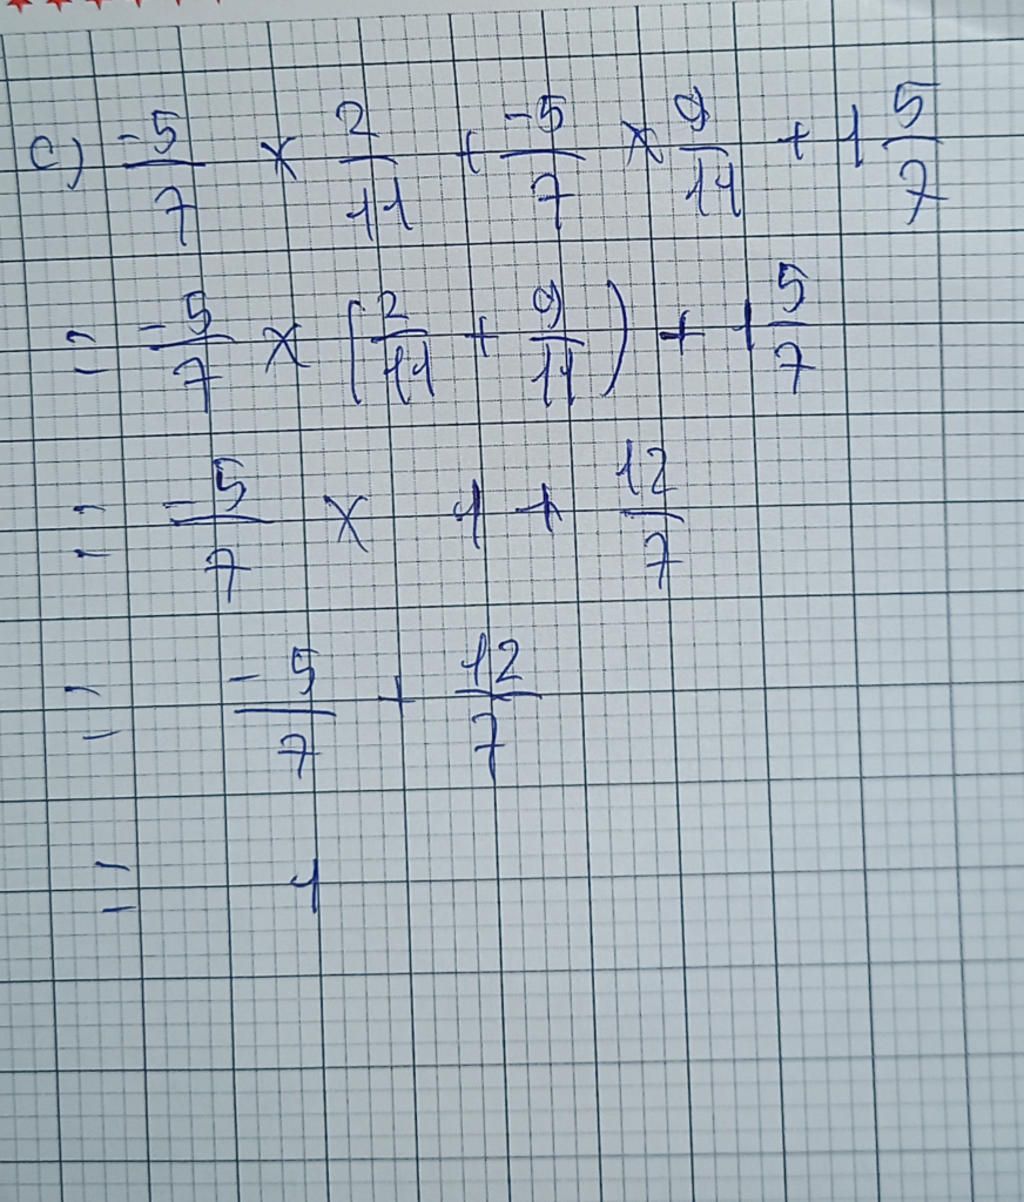 c) -5/7 x 2/11 + -5/7 x 9/11 + 1 5/7
= -5/7 x (2/11 + 9/11) + 1 5/7
= -5/7 x 1 + 12/7
= -5/7 + 12/7
= 1